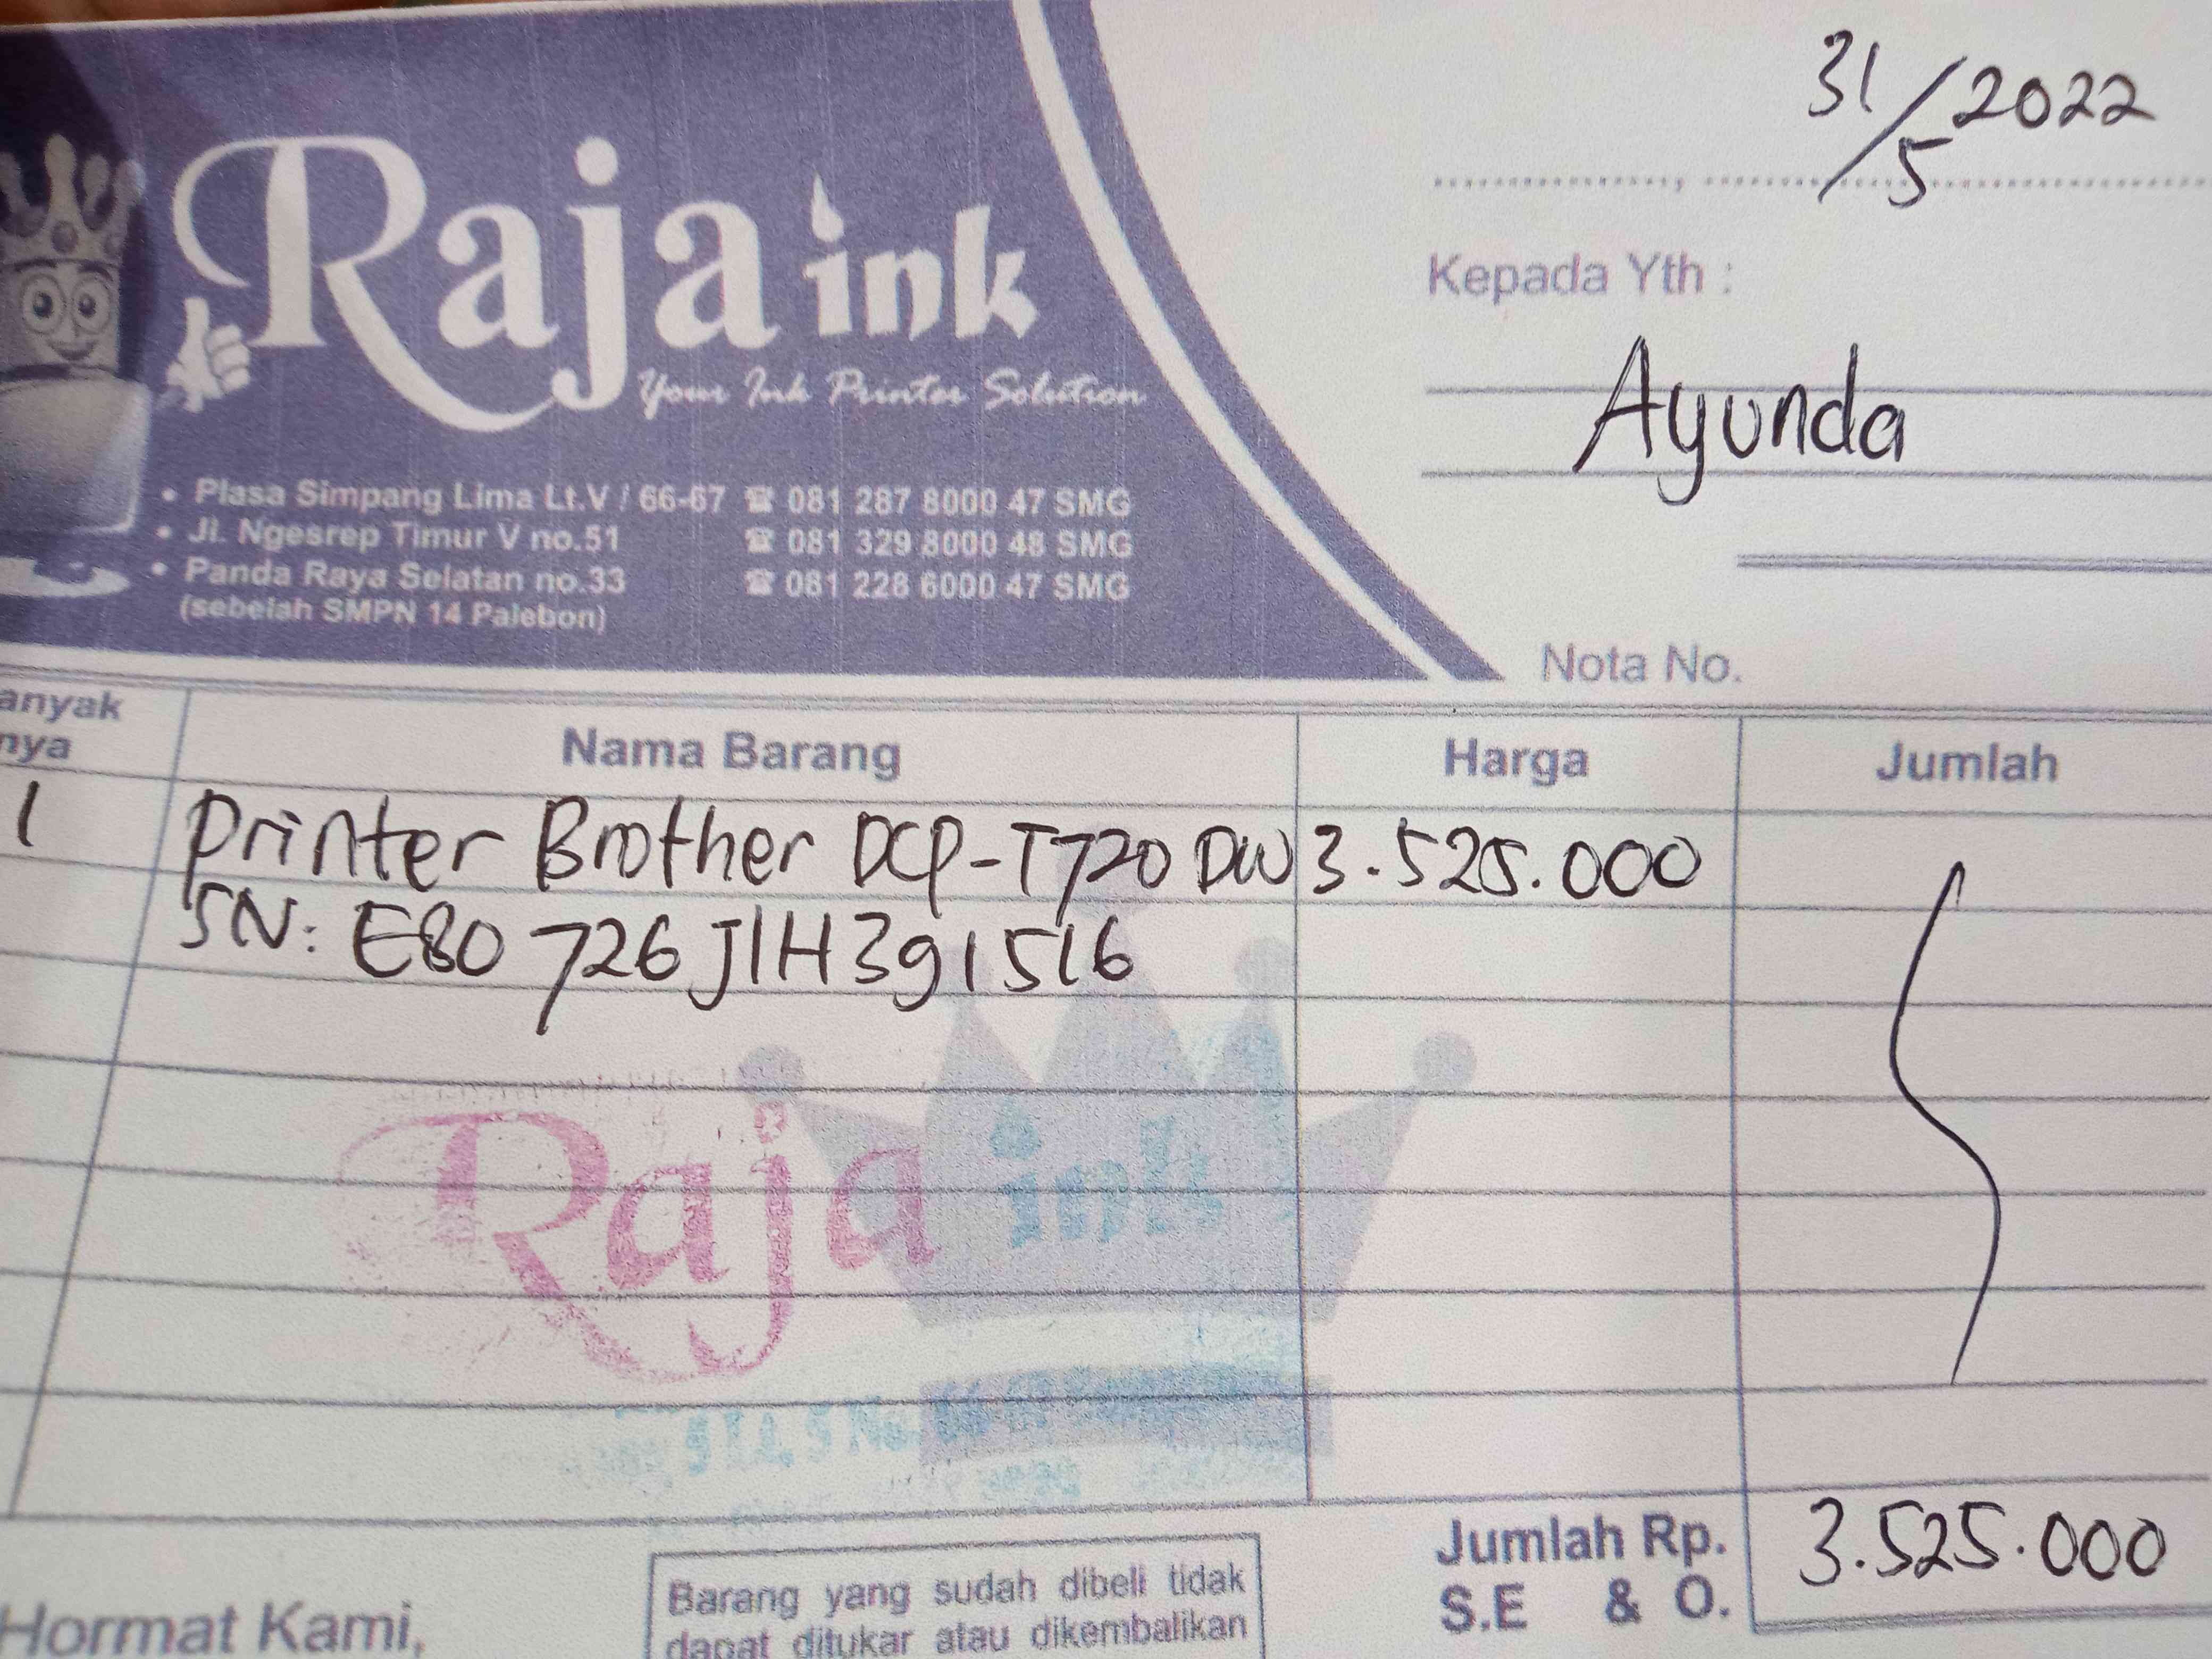 31/5 2022
Raja ink
Your Ink Printer Solution
Kepada Yth :
Ayunda
• Plasa Simpang Lima Lt.V / 66-67 ☎ 081 287 8000 47 SMG
• Jl. Ngesrep Timur V no.51 ☎ 081 329 8000 48 SMG
• Panda Raya Selatan no.33 ☎ 081 228 6000 47 SMG
(sebelah SMPN 14 Palebon)
Nota No.
anyak
nya
Nama Barang Harga Jumlah
1 Printer Brother DCP-T720 DW 3.525.000
SN: E80726J1H391516
Raja ink
Jumlah Rp. 3.525.000
S.E & O.
Hormat Kami,
Barang yang sudah dibeli tidak
dapat ditukar atau dikembalikan